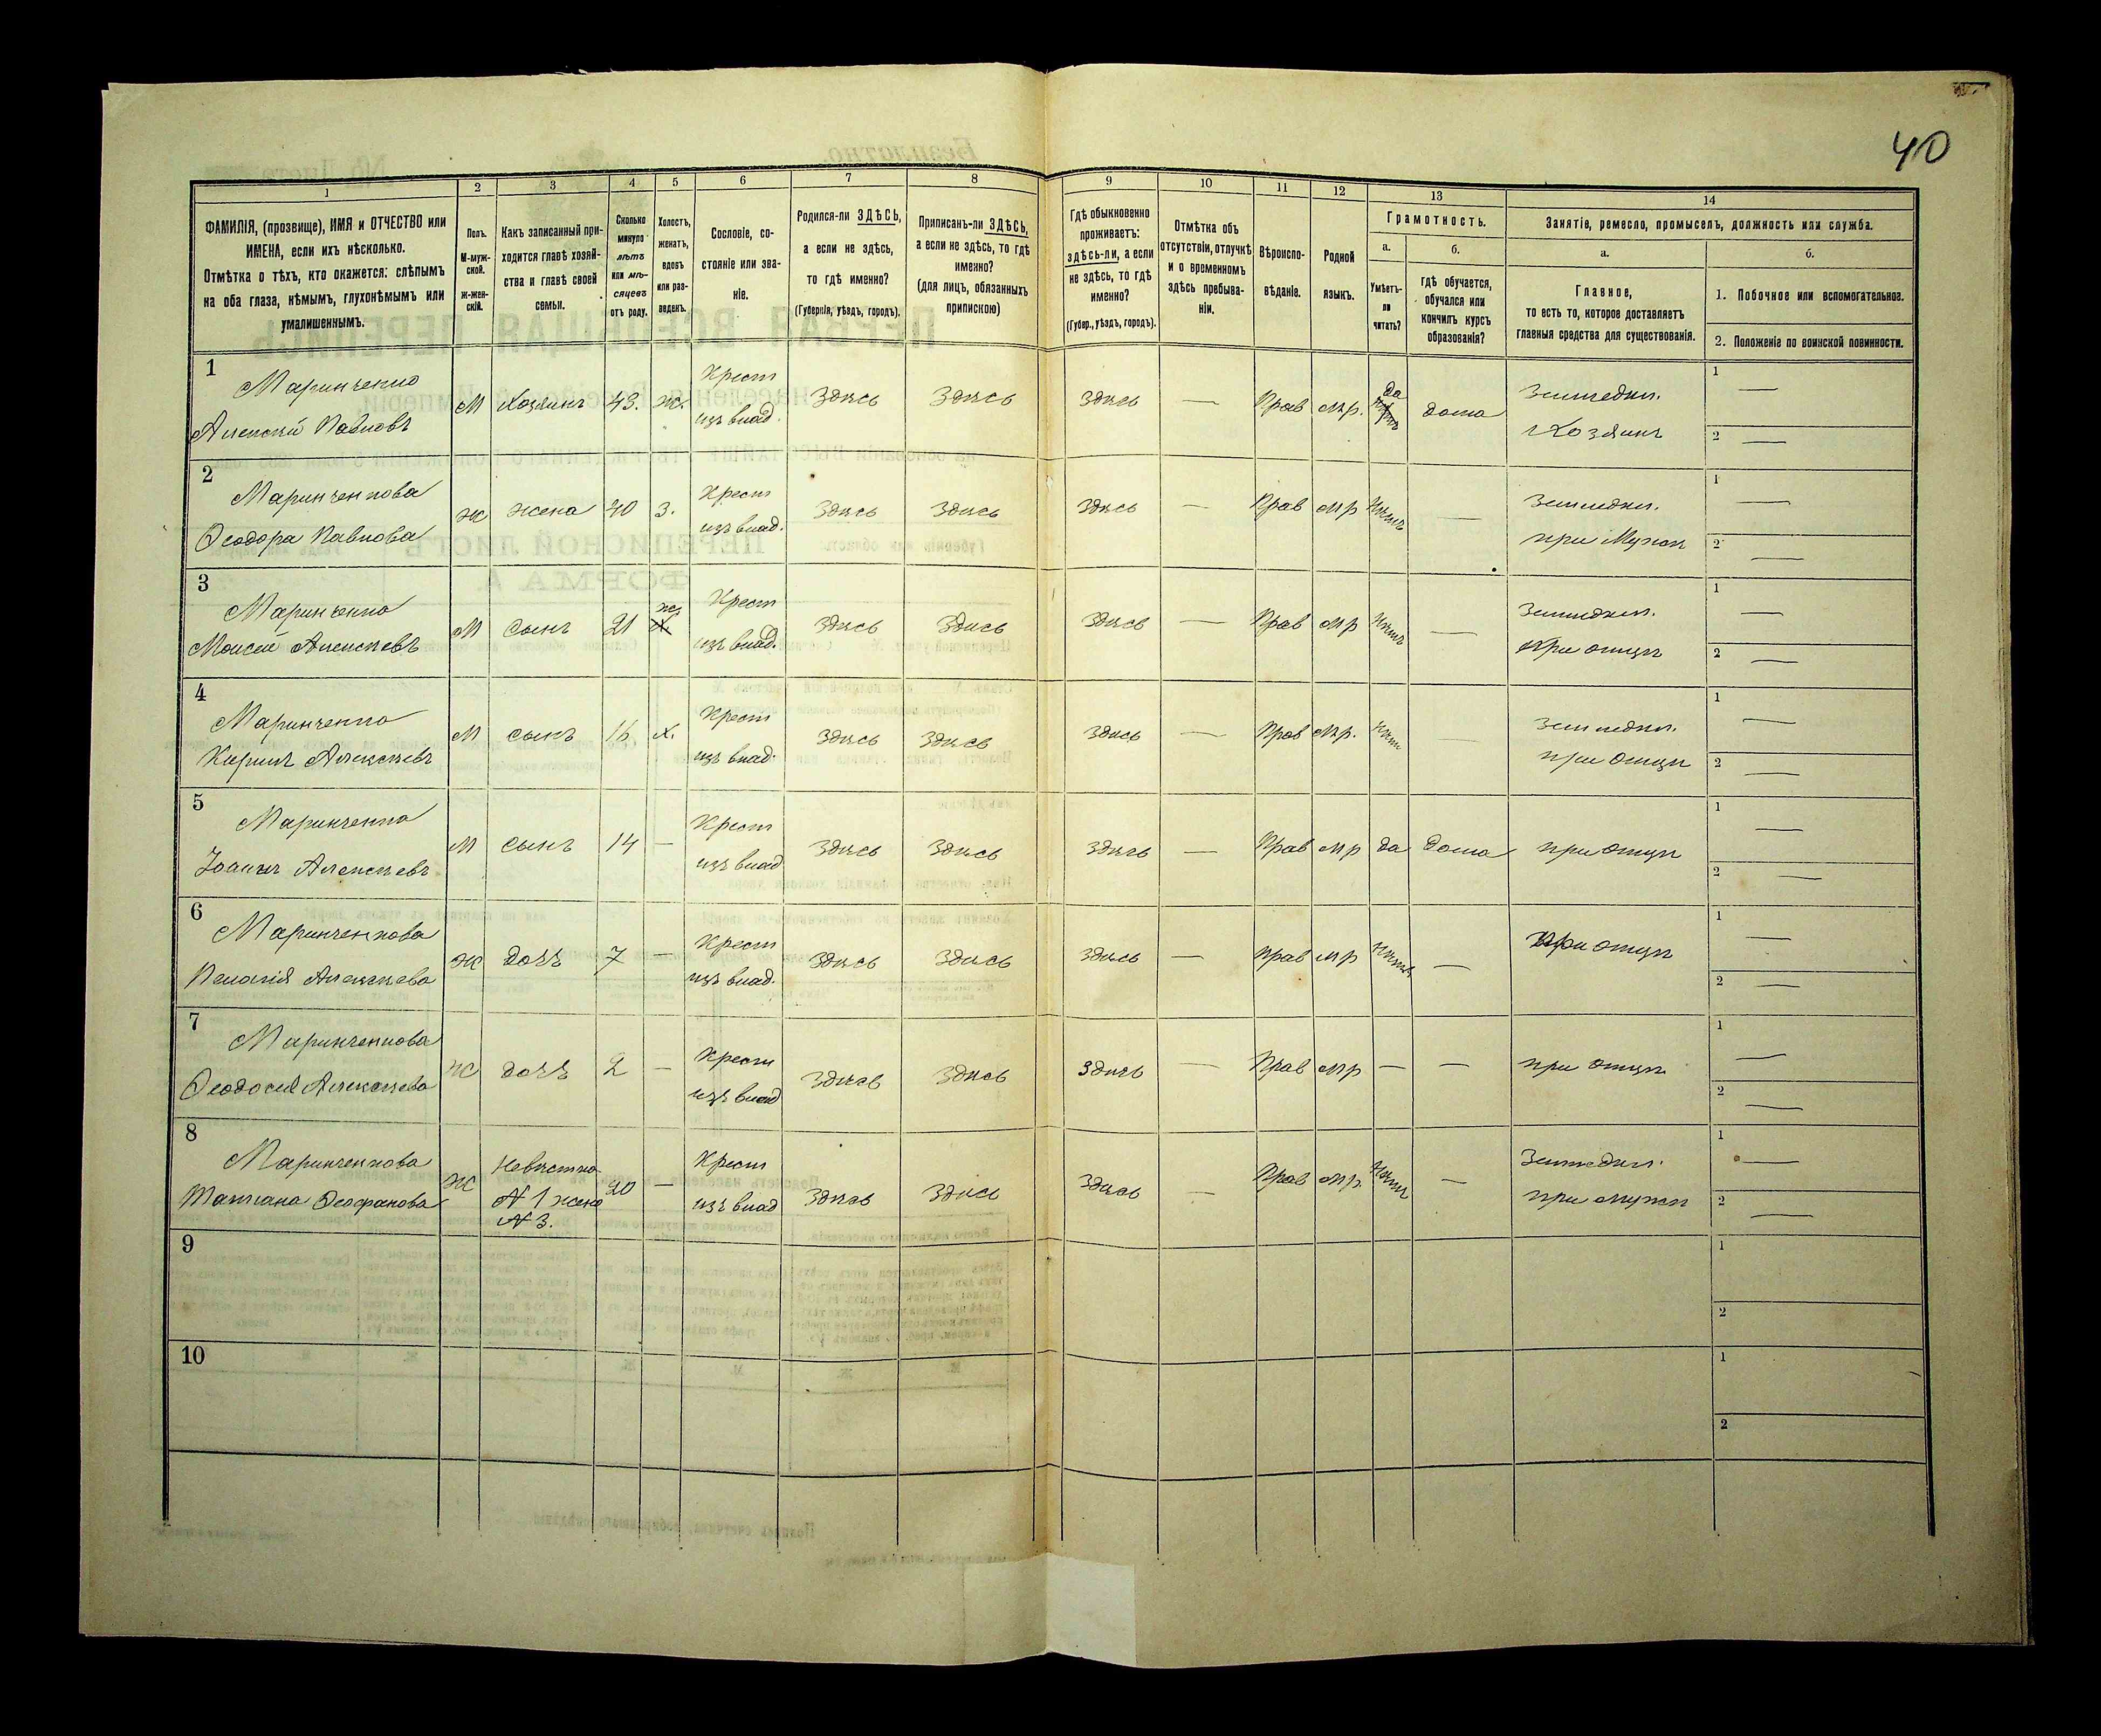 40
1
2
3
4
5
6
7
8
9
10
11
12
13
14
ФАМИЛІЯ, (прозвище), ИМЯ и ОТЧЕСТВО или
ИМЕНА, если ихъ нѣсколько.
Отмѣтка о тѣхъ, кто окажется: слѣпымъ
на оба глаза, нѣмымъ, глухонѣмымъ или
умалишеннымъ.
Полъ.
М-муж-
ской.
Ж-жен-
скій.
Какъ записанный при-
ходится главѣ хозяй-
ства и главѣ своей
семьи.
Сколько
минуло
лѣтъ
или мѣ-
сяцевъ
отъ роду.
Холостъ,
женатъ,
вдовъ
или раз-
веденъ.
Сословіе, со-
стояніе или зва-
ніе.
Родился-ли ЗДѢСЬ,
а если не здѣсь,
то гдѣ именно?
(Губернія, уѣздъ, городъ).
Приписанъ-ли ЗДѢСЬ,
а если не здѣсь, то гдѣ
именно?
(для лицъ, обязанныхъ
припискою)
Гдѣ обыкновенно
проживаетъ:
здѣсь-ли, а если
не здѣсь, то гдѣ
именно?
(Губер., уѣздъ, городъ).
Отмѣтка объ
отсутствіи, отлучкѣ
и о временномъ
здѣсь пребыва-
ніи.
Вѣроиспо-
вѣданіе.
Родной
языкъ.
Грамотность.
а.
Умѣетъ-
ли
читать?
б.
Гдѣ обучается,
обучался или
кончилъ курсъ
образованія?
Занятіе, ремесло, промыселъ, должность или служба.
а.
Главное,
то есть то, которое доставляетъ
главныя средства для существованія.
б.
1. Побочное или вспомогательное.
2. Положеніе по воинской повинности.
1
Маринченко
Алексѣй Павловъ
М Хозяинъ 43. ж. Крест
изъ влад. Здѣсь Здѣсь Здѣсь — Прав мр. да дома Земледѣл.
Хозяинъ
1 —
2 —
2
Маринченкова
Ѳеодора Павлова
Ж жена 40 з. Крест
изъ влад. Здѣсь Здѣсь Здѣсь — Прав мр нѣтъ — Земледѣл.
при Мужѣ
1 —
2 —
3
Маринченко
Моисей Алексѣевъ
М сынъ 21 ж. Крест
изъ влад. Здѣсь Здѣсь Здѣсь — Прав мр нѣтъ — Земледѣл.
при отцѣ
1 —
2 —
4
Маринченко
Кирилъ Алексѣевъ
М сынъ 16 х. Крест
изъ влад. Здѣсь Здѣсь Здѣсь — Прав мр. нѣтъ — Земледѣл.
при отцѣ
1 —
2 —
5
Маринченко
Іоаннъ Алексѣевъ
М сынъ 14 — Крест
изъ влад Здѣсь Здѣсь Здѣсь — Прав мр да дома при отцѣ
1 —
2 —
6
Маринченкова
Пелагія Алексѣева
Ж дочь 7 — Крест
изъ влад. Здѣсь Здѣсь Здѣсь — Прав мр нѣтъ — При отцѣ
1 —
2 —
7
Маринченкова
Ѳеодосія Алексѣева
Ж дочь 2 — Крест
изъ влад Здѣсь Здѣсь Здѣсь — Прав мр — — при отцѣ
1 —
2 —
8
Маринченкова
Татіана Ѳеофанова
Ж Невѣстка
№ 1 жена
№ 3. 20 — Крест
изъ влад Здѣсь Здѣсь Здѣсь — Прав мр. нѣтъ — Земледѣл.
при мужѣ
1 —
2 —
9
1
2
10
1
2